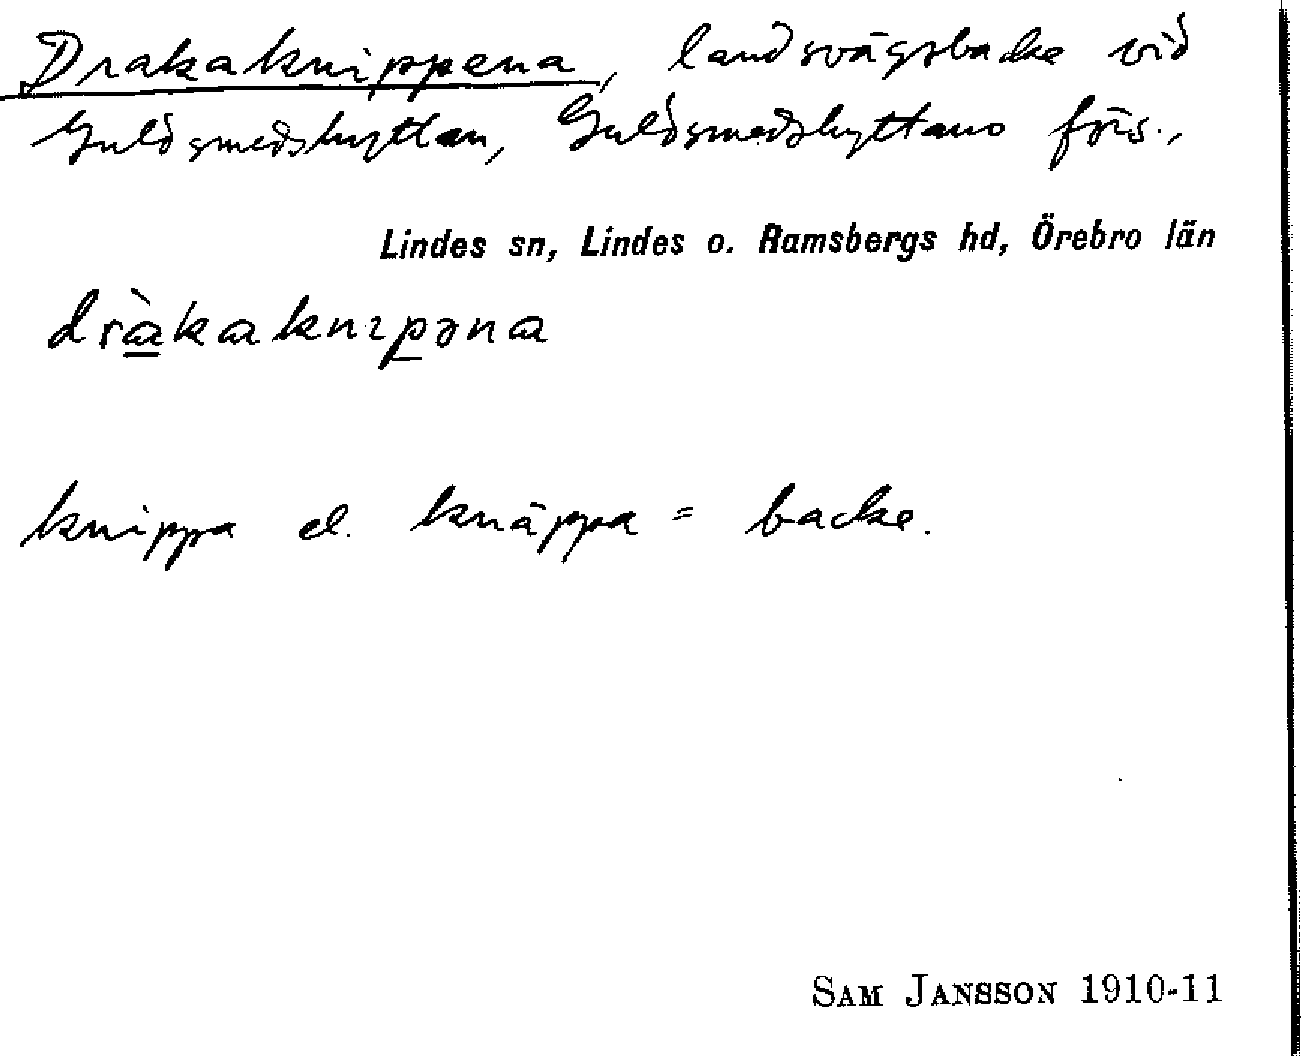 Drakaknippena, landsvägsbacke vid
Guldsmedshyttan, Guldsmedshyttans förs.,
Lindes sn, Lindes o. Ramsbergs hd, Örebro län
dràkaknɩpəna
knippa el. knäppa = backe.
SAM JANSSON 1910-11